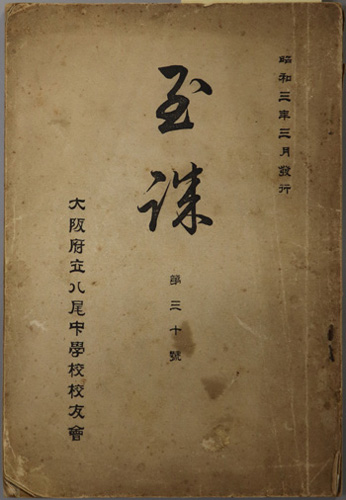 昭和三年三月發行
至誠
第三十號
大阪府立八尾中學校校友會